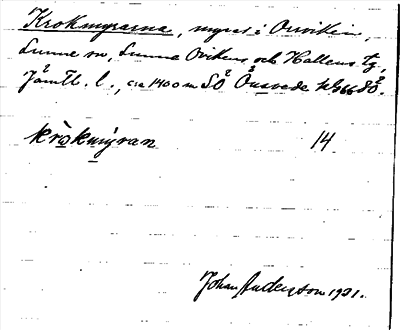 Krokmyrarna, myrar i Orviken,
Sunne sn, Sunne Ovikens och Hallens tg,
Jämtl. l., ca 1400 m SÖ Önsvede 466 SÖ.
kròkmýran 14.
Johan Anderson 1931.